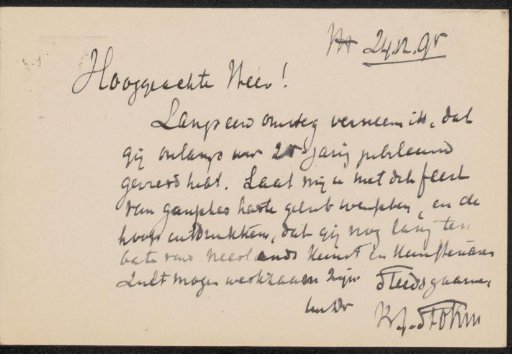 24.12.95
Hooggeachte Heer!
Langs een omweg verneem ik, dat
gij onlangs uw 25 jarig jubileum
gevierd hebt. Laat mij u met dit feest
van ganscher harte geluk wenschen, en de
hoop uitdrukken, dat gij nog lang ten
bate van Neerlands Kunst en Kunstenaars
zult mogen werkzaam zijn. Steeds gaarne,